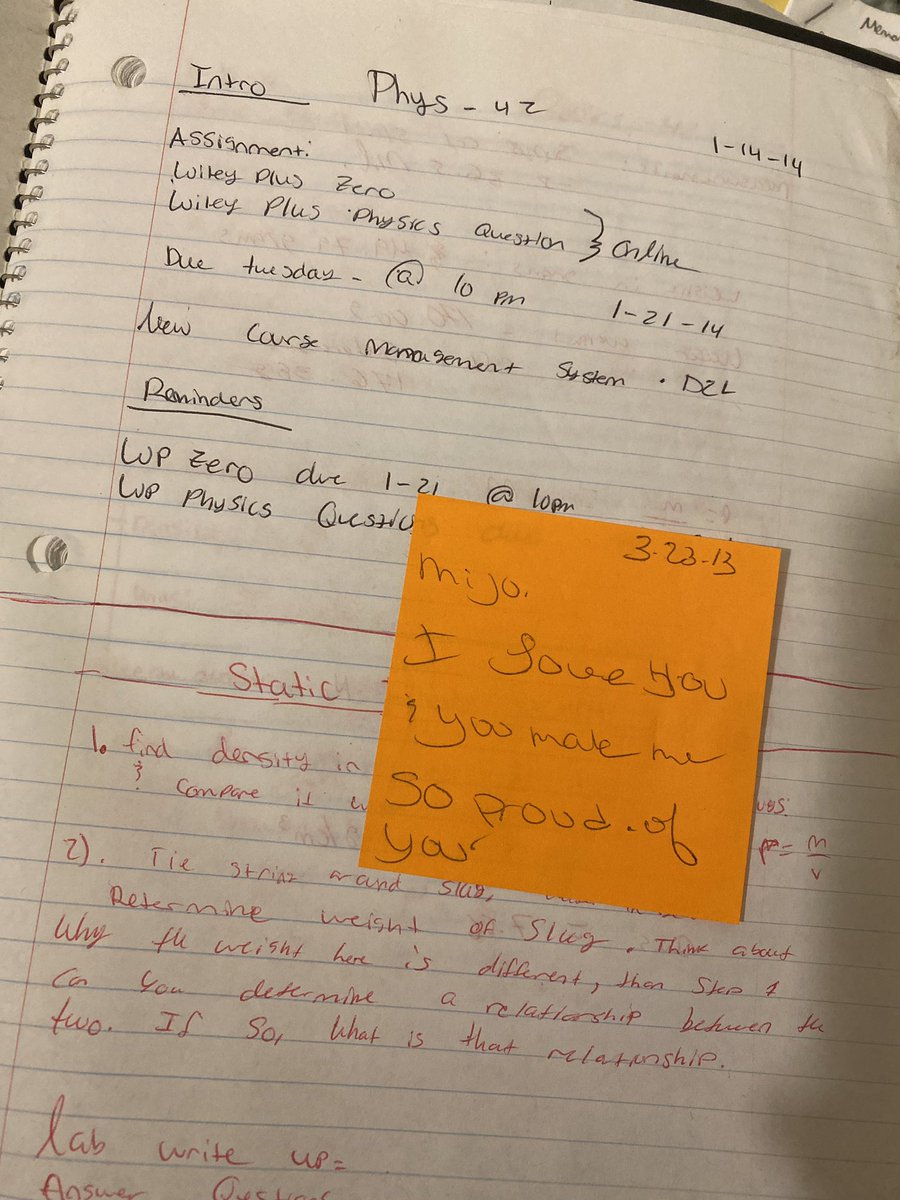 Memo
Intro Phys - 42
1-14-14
Assignment:
Wiley Plus Zero
Wiley Plus Physics Question } Online
Due tuesday - @ 10 pm 1-21-14
New Course Management System • D2L
Reminders
WP Zero due 1-21 @ 10pm
WP Physics Question
3-23-13
Mijo.
I Love you
& you make me
So proud. of
you
Static
1. find density in
& Compare it
ρ = m
v
2). Tie string around slug,
Determine weight of Slug. Think about
Why the weight here is different, then Step 1
Can you determine a relationship between the
two. If So, What is that relationship.
Lab write up=
Answer Questions